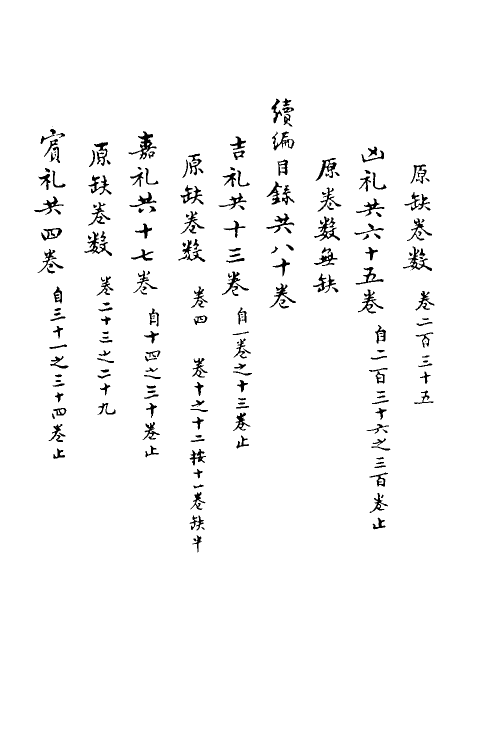 原缺卷数 卷二百三十五
凶礼共六十五卷 自二百三十六之三百卷止
原卷数無缺
續编目錄共八十卷
吉礼共十三卷 自一卷之十三卷止
原缺卷数 卷四 卷十之十二按十一卷缺半
嘉礼共十七卷 自十四之三十卷止
原缺卷数 卷二十三之二十九
賓礼共四卷 自三十一之三十四卷止